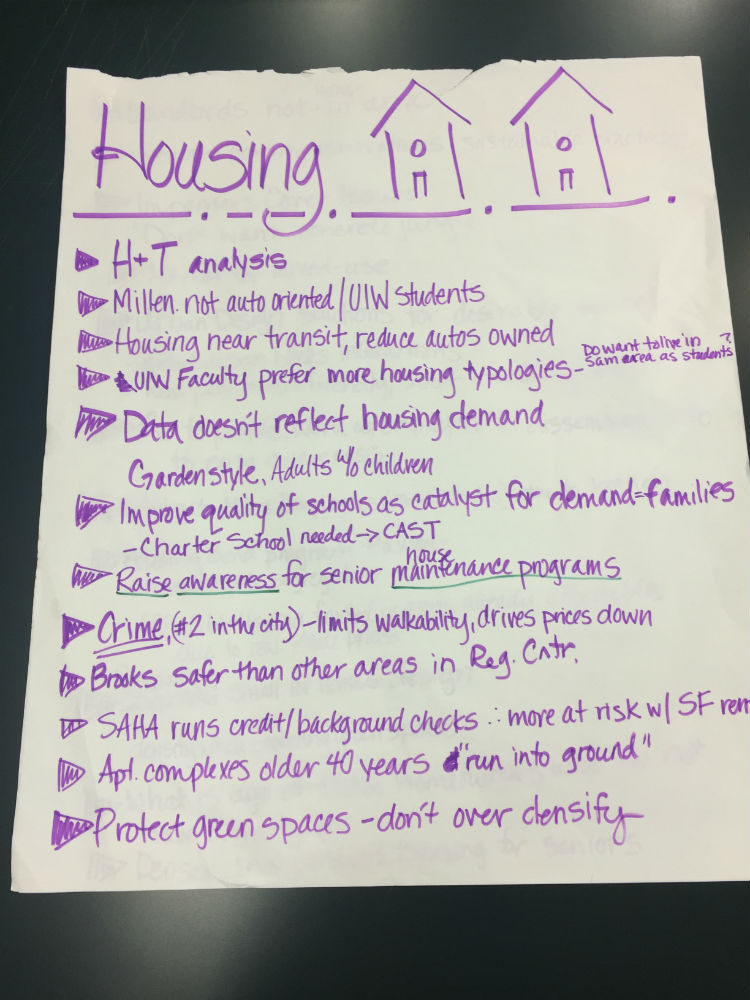 Housing
H+T analysis
Millen. not auto oriented/UIW students
Housing near transit, reduce autos owned
UIW Faculty prefer more housing typologies- Do want to live in sam area as students?
Data doesn't reflect housing demand
Garden style, Adults w/o children
Improve quality of schools as catalyst for demand=families
-Charter School needed→CAST
Raise awareness for senior house maintenance programs
Crime, (#2 in the city)-limits walkability, drives prices down
Brooks safer than other areas in Reg. Cntr.
SAHA runs credit/background checks ∴ more at risk w/ SF ren
Apt. complexes older 40 years "run into ground"
Protect green spaces - don't over densify